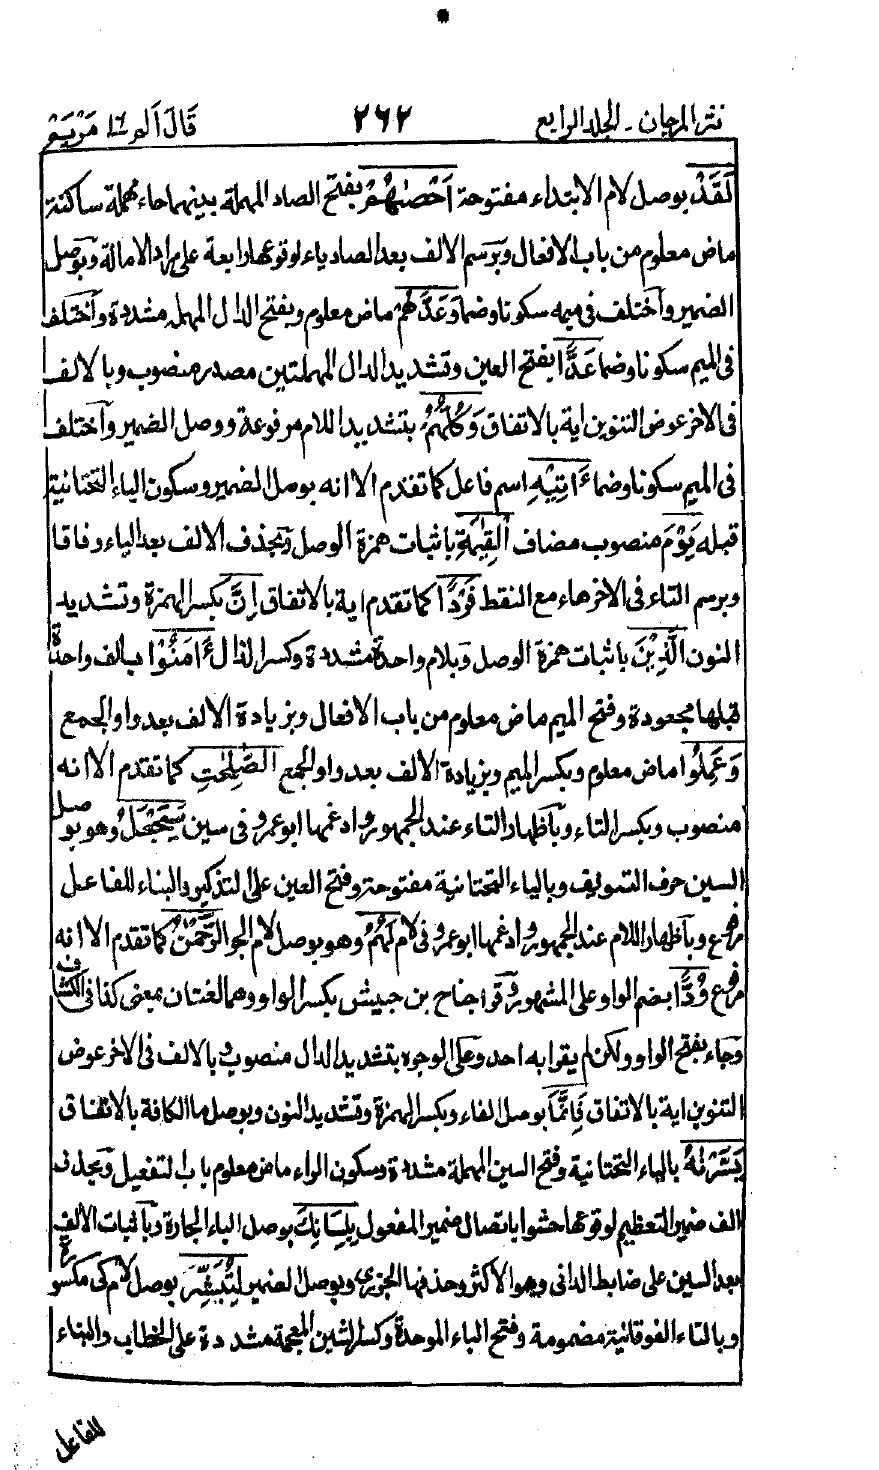 نثر المرجان - الجلد الرابع ٢٦٢ قَالَ اَلم ١٦ مَرْيَم
لَقَدْ بوصل لام الابتداء مفتوحة اَحْصٰىهُمْ بفتح الصاد المهملة بينهما حاء مهملة ساكنة
ماض معلوم من باب الافعال وبرسم الالف بعد الصاد ياء لوقوعها رابعة على مراد الامالة وبوصل
الضمير واختلف فى ميمه سكونا وضما وَعَدَّهُمْ ماض معلوم وبفتح الدال المهملة مشددة واختلف
فى الميم سكونا وضما عَدًّا بفتح العين وتشديد الدال المهملتين مصدر منصوب وبالالف
فى الاخر عوض التنوين اية بالاتفاق وَكُلُّهُمْ بتشديد اللام مرفوعة ووصل الضمير واختلف
فى الميم سكونا وضما ءَاتِيْهِ اسم فاعل كما تقدم الا انه بوصل الضمير وسكون الياء التحتانية
قبله يَوْمَ منصوب مضاف الْقِيٰمَةِ باثبات همزة الوصل وبحذف الالف بعد الياء وفاقا
وبرسم التاء فى الاخر هاء مع النقط فَرْدًا كما تقدم اية بالاتفاق اِنَّ بكسر الهمزة وتشديد
النون الَّذِيْنَ باثبات همزة الوصل وبلام واحدة مشددة وكسر الذال ءَامَنُوْا بالف واحدة
قبلها مجعودة وفتح الميم ماض معلوم من باب الافعال وبزيادة الالف بعد واو الجمع
وَعَمِلُوا ماض معلوم وبكسر الميم وبزيادة الالف بعد واو الجمع الصّٰلِحٰتِ كما تقدم الا انه
منصوب وبكسر التاء وباظهار التاء عند الجمهور وادغمها ابو عمرو فى سين سَيَجْعَلُ وهو بوصل
السين حرف التسويف وبالياء التحتانية مفتوحة وفتح العين على التذكير والبناء للفاعل
مرفوع وباظهار اللام عند الجمهور وادغمها ابو عمرو فى لام لَهُمُ وهو بوصل لام الجر الرَّحْمٰنُ كما تقدم الا انه
مرفوع وُدًّا بضم الواو على المشهور وقرا جناح بن حبيش بكسر الواو وهما لغتان بمعنى كذا فى الكشاف
وجاء بفتح الواو ولكن لم يقرا به احد وعلى الوجوه بتشديد الدال منصوب وبالالف فى الاخر عوض
التنوين اية بالاتفاق فَاِنَّمَا بوصل الفاء وبكسر الهمزة وتشديد النون وبوصل ما الكافة بالاتفاق
يَسَّرْنٰهُ بالياء التحتانية وفتح السين المهملة مشددة وسكون الراء ماض معلوم باب التفعيل وبحذف
الف ضمير التعظيم لوقوعها حشوا باتصال ضمير المفعول بِلِسَانِكَ بوصل الباء الجارة وباثبات الالف
بعد السين على ضابط الدانى وهو الاكثر وحذفها الجزرى وبوصل الضمير لِتُبَشِّرَ بوصل لام كى مكسورة
وبالتاء الفوقانية مضمومة وفتح الباء الموحدة وكسر الشين المعجمة مشددة على الخطاب والبناء
للفاعل